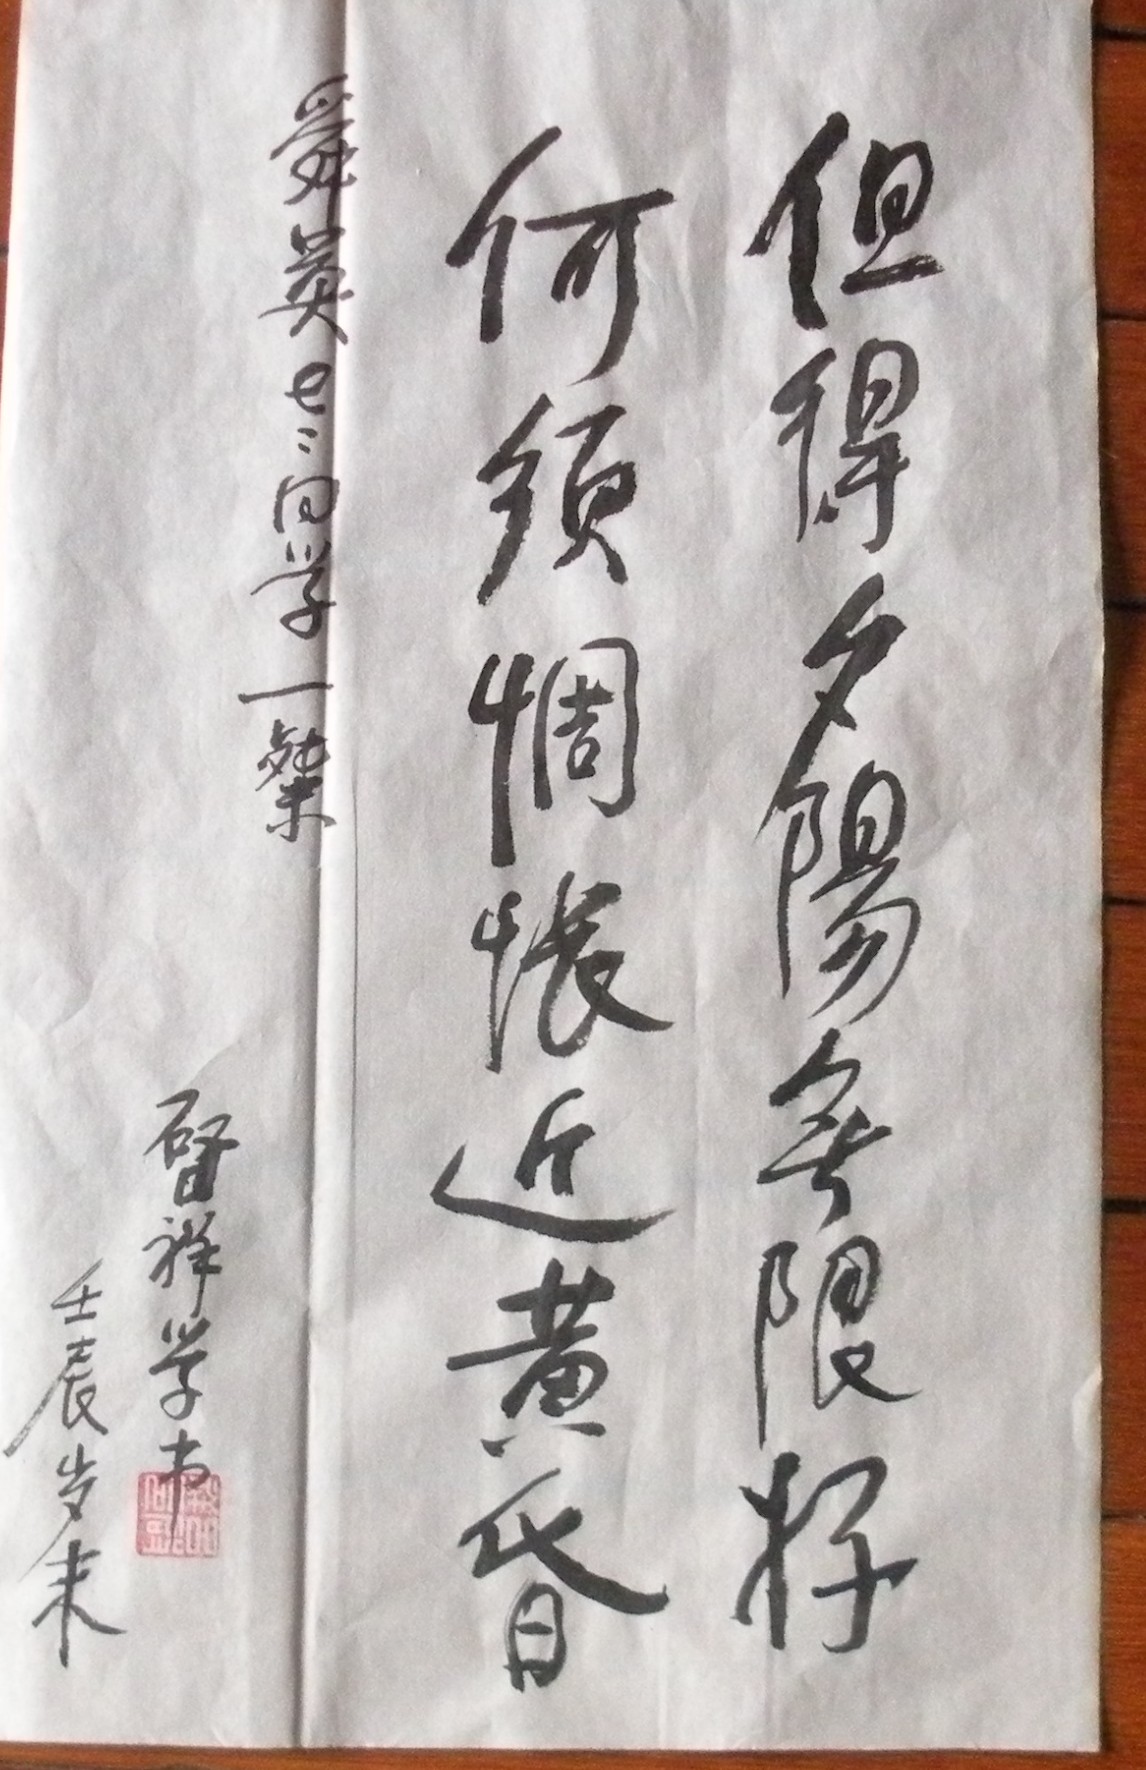 但得夕陽無限好
何須惆悵近黄昏
舜英老〻同学一粲
啓祥学书
壬辰岁末